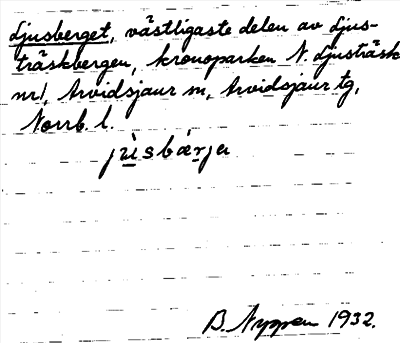 Ljusberget, västligaste delen av Ljus-
träskbergen, kronoparken N. Ljusträsk
nr 1, Arvidsjaur sn, Arvidsjaur tg,
Norrb. l.
jùsbærja
B. Nyppen 1932.